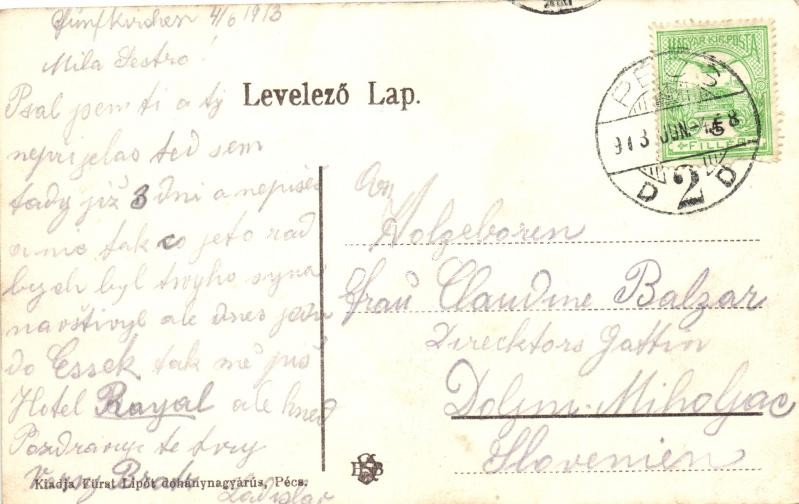 Fünfkirchen 4/6 1913
Mila Sestro!
Psal jsem ti a ty
neprijelas ted sem
tady již 3 dni a nepišeš
a nic tak co je to rad
bych byl tvyho syna
navštivyl ale dnes jedu
do Essek tak mě piš
Hotel Royal ale hned
Pozdravuje te tvy
Brat
Ladislav
Levelező Lap.
MAGYAR KIR. POSTA
5
FILLÉR
PÉCS
913 JUN
D 2 D
An
Holgeboren
Frau Claudine Balzar
Direcktors Gattin
Dolјni-Miholjac
Slovenien
HSB
Kiadja Fürst Lipót dohánynagyárús, Pécs.